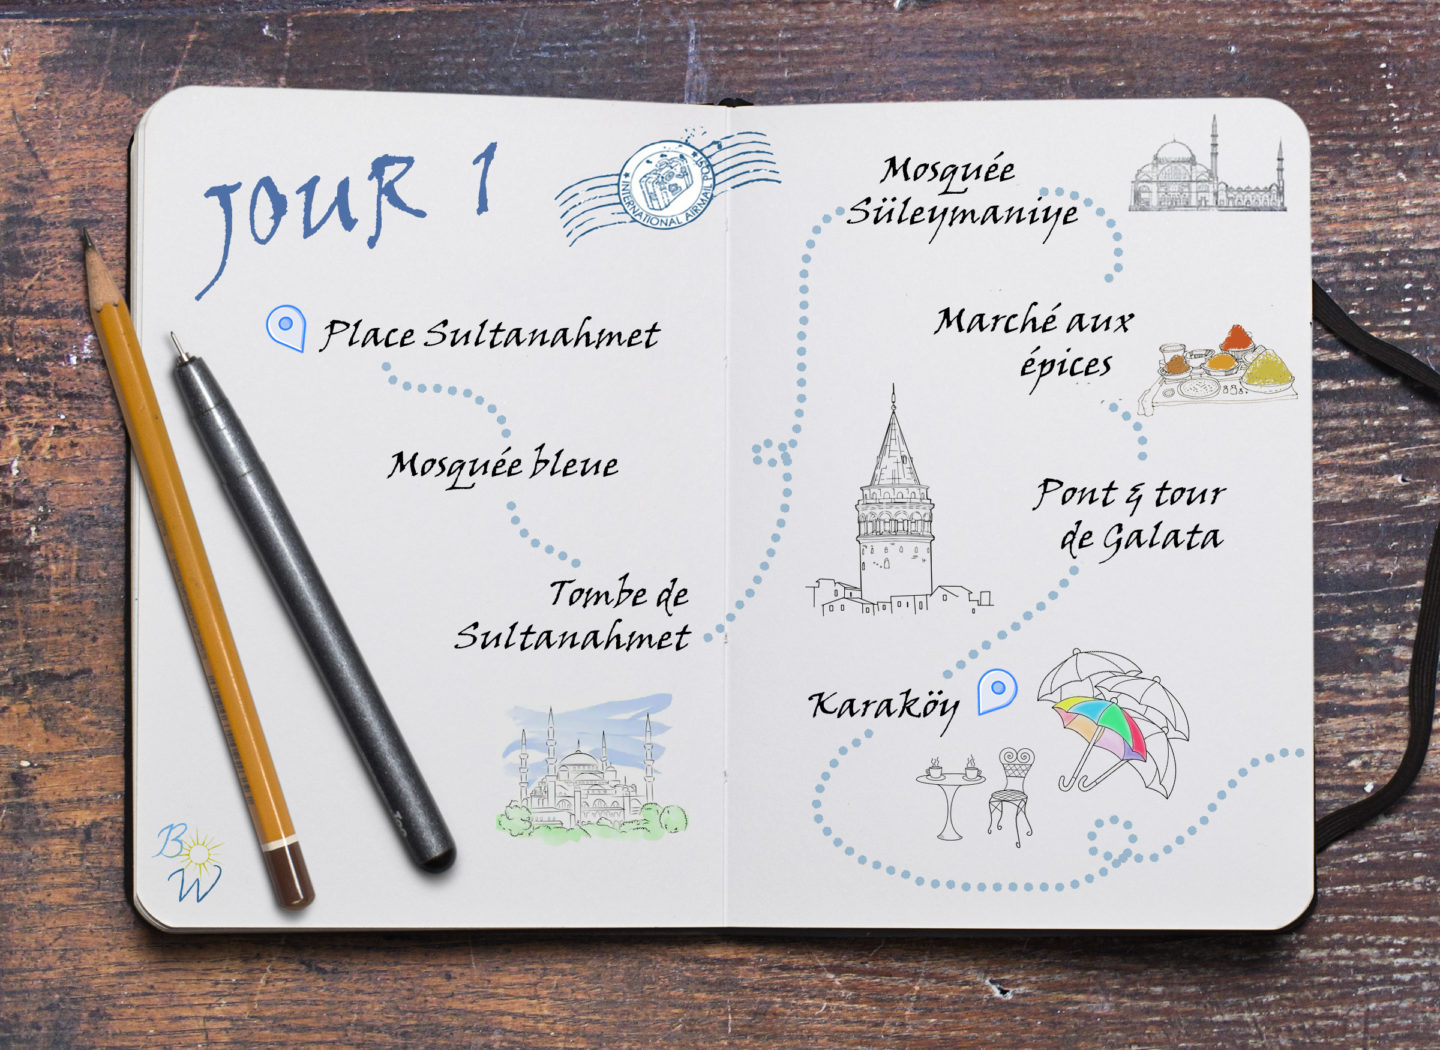 JOUR 1
INTERNATIONAL AIRMAIL POST
Place Sultanahmet
Mosquée bleue
Tombe de
Sultanahmet
Mosquée
Süleymaniye
Marché aux
épices
Pont & tour
de Galata
Karaköy
B
W